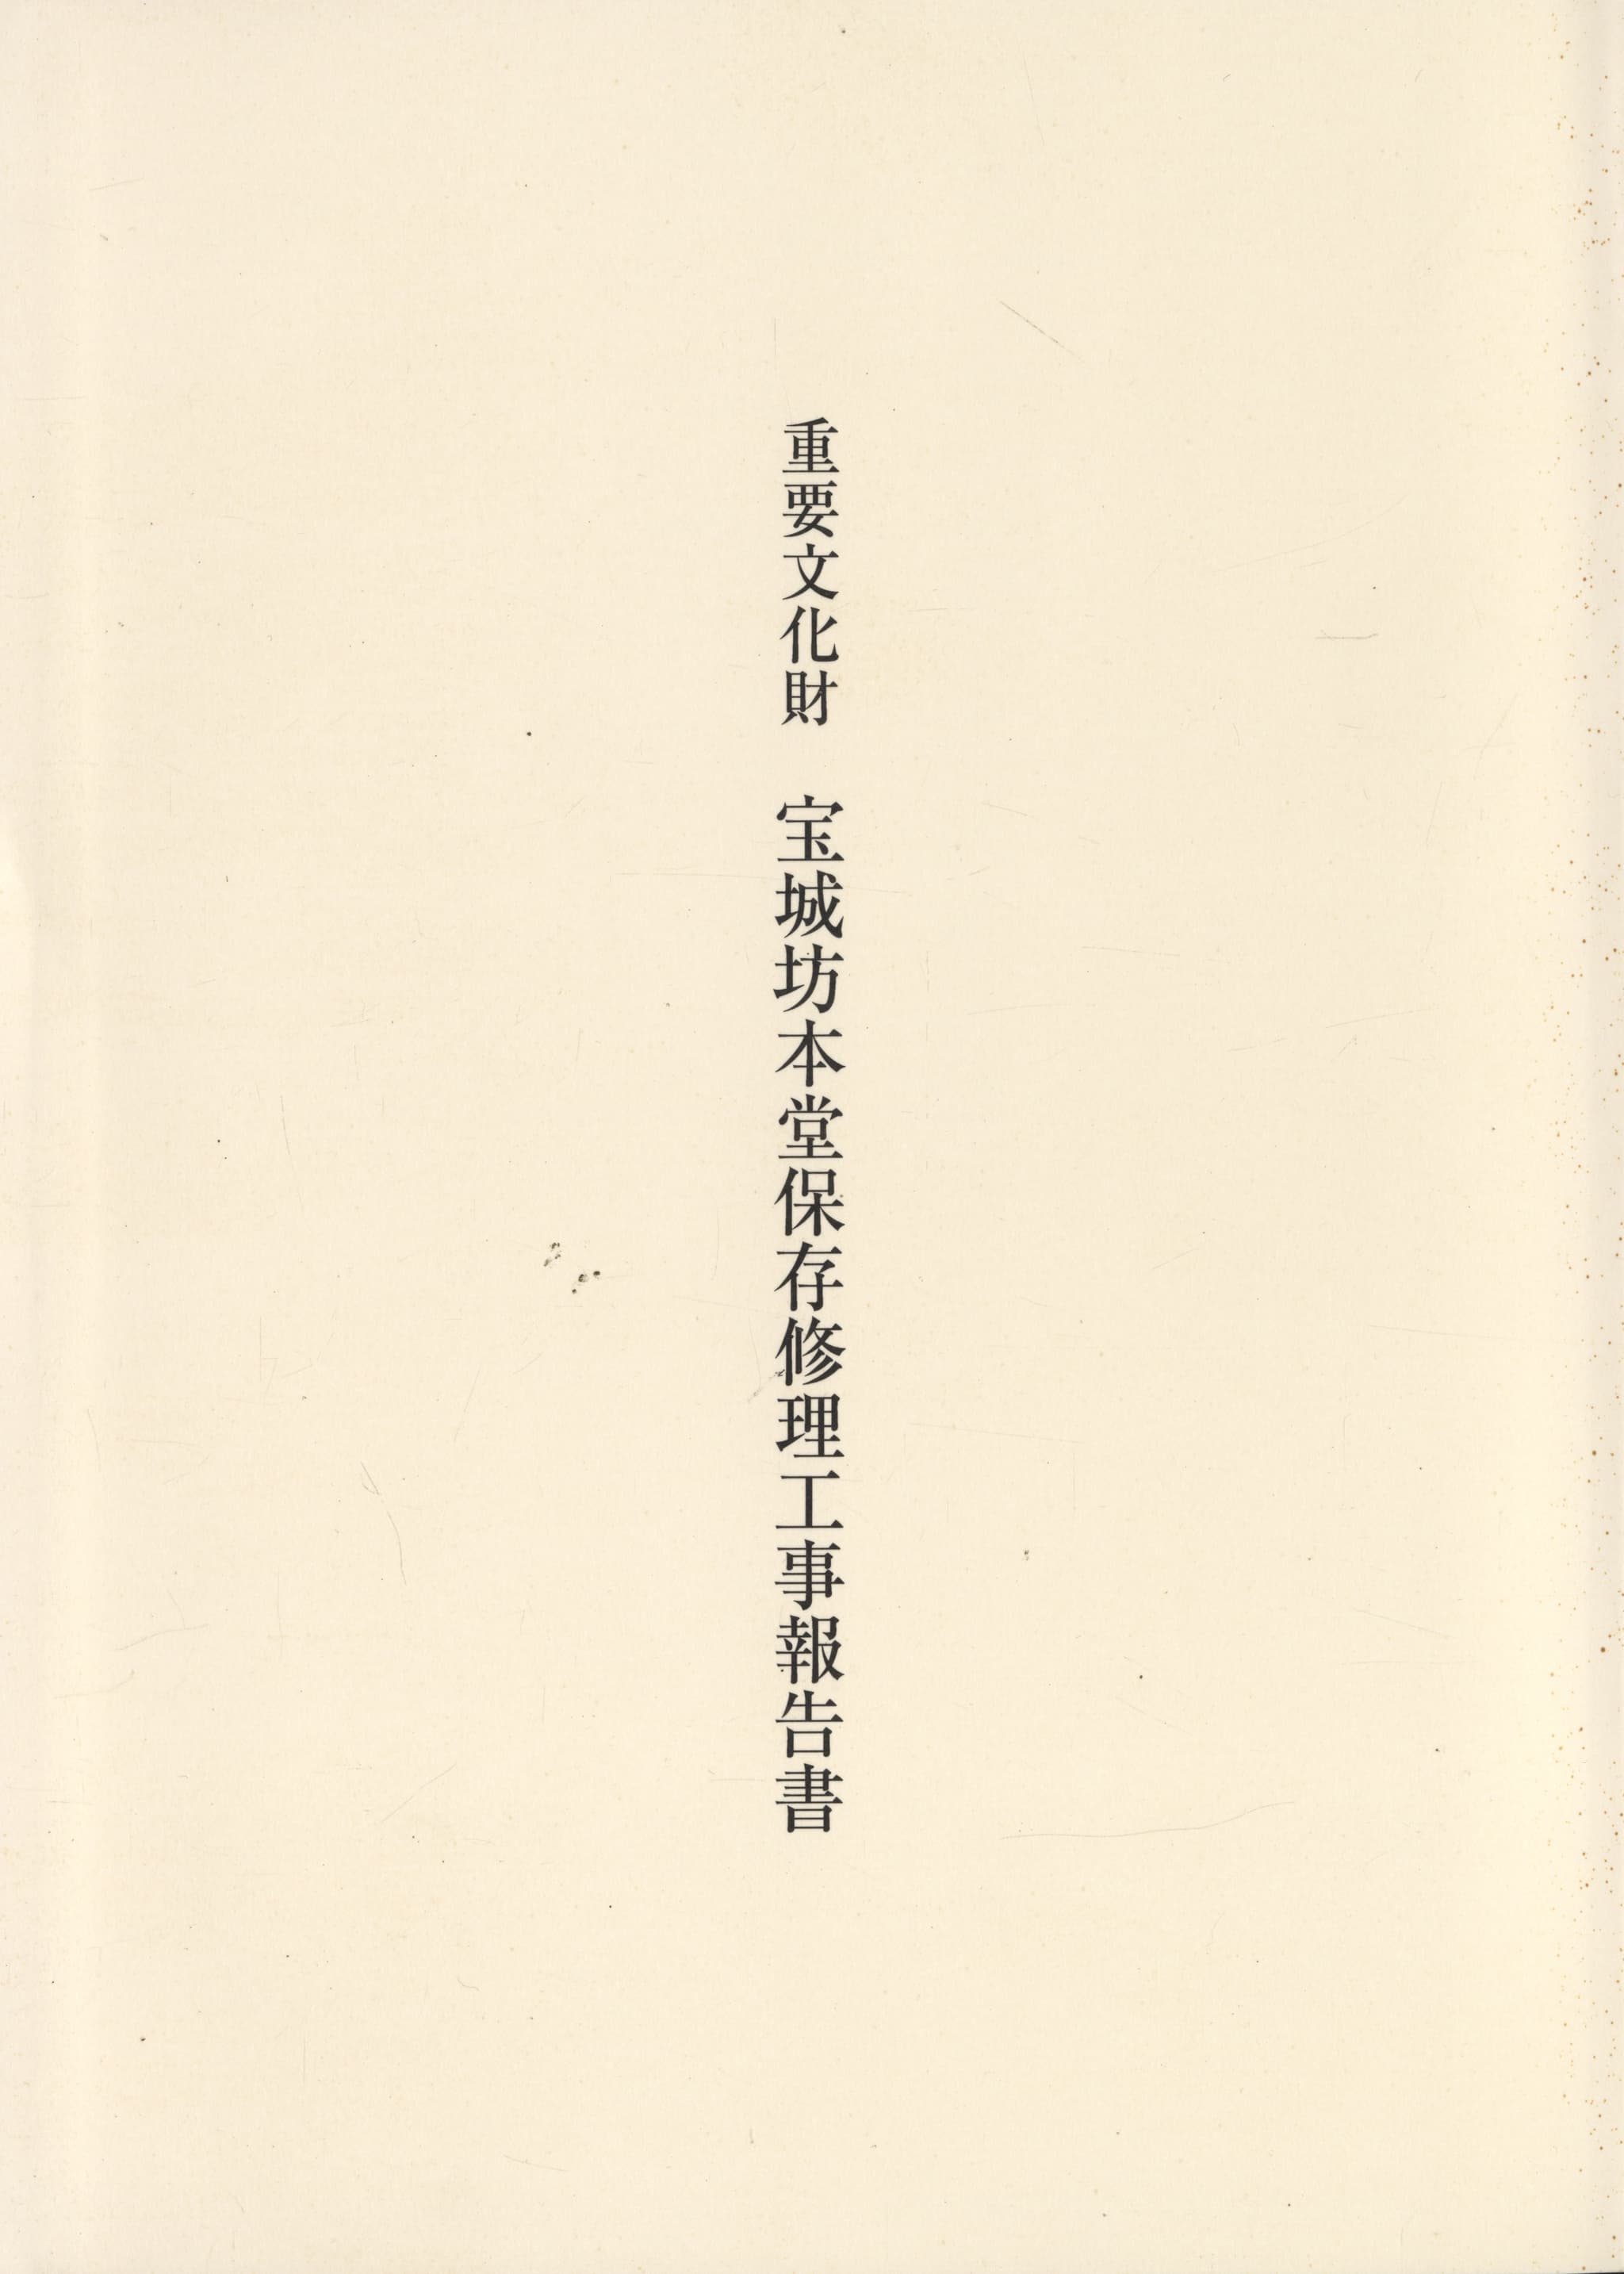 重要文化財　宝城坊本堂保存修理工事報告書